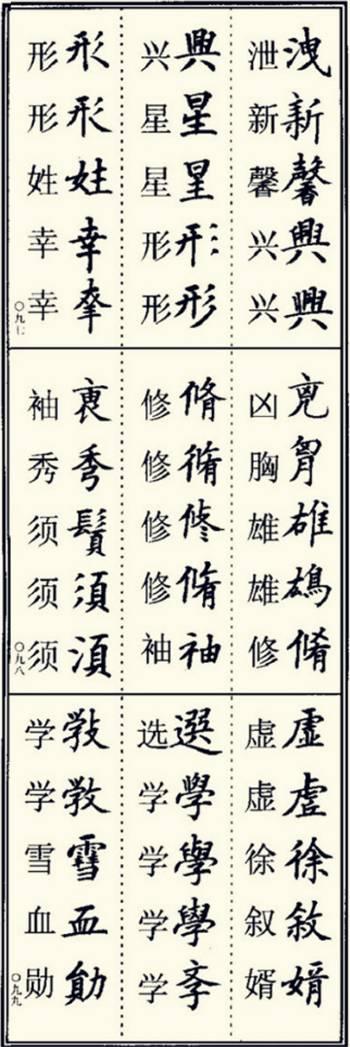 洩新馨興興
泄新馨兴兴
興星星形形
兴星星形形
形形姓幸幸
形形姓幸幸
〇九七
兇胷雄脩
凶胸雄雄修
脩脩修脩袖
修修修修袖
秀鬚須湏
袖秀须须须
〇九八
虛虗徐敘婿
虚虚徐叙婿
選學學學斈
选学学学学
雪血勛
学学雪血勋
〇九九